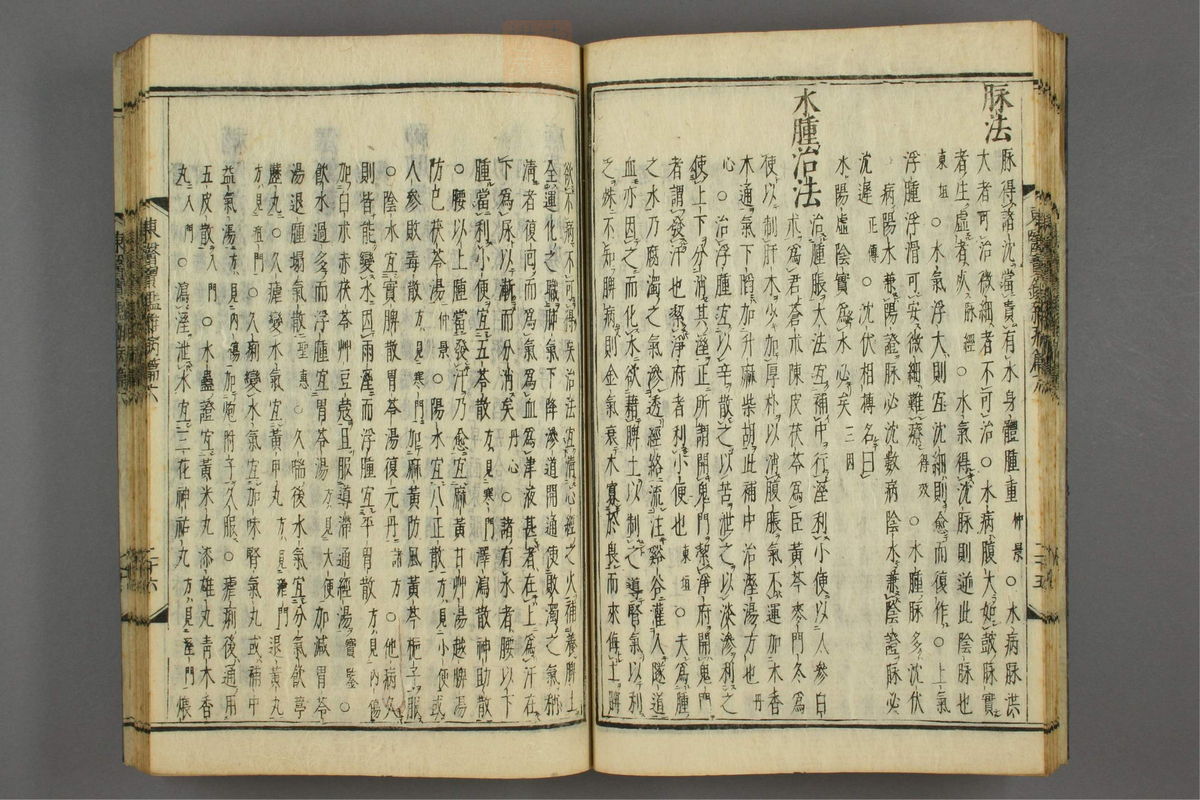 脉法
脉得諸沈當責有水身體腫重仲景○水病脉洪
大者可治微細者不可治○水病腹大如皷脉實
者生虛者死脉經○水氣得沈脉則逆此陰脉也
東垣○水氣浮大則宜沈細則愈而復作○上氣
浮腫浮滑可安微細難療得效○水腫脉多沈伏
病陽水兼陽證脉必沈數病陰水兼陰證脉必
沈遲正傳○沈伏相搏名曰
水陽虛陰實爲水必矣三因
水腫治法
治腫脹大法宜補中行濕利小便以人參白
朮爲君蒼朮陳皮茯苓爲臣黃芩麥門冬爲
使以制肝木少加厚朴以消腹脹氣不運加木香
木通氣下陷加升麻柴胡此補中治水湯方也丹
心○治浮腫宜以辛散之以苦泄之以淡滲利之
使上下分消其濕正所謂開鬼門潔淨府開鬼門
者謂發汗也潔淨府者利小便也東垣○夫爲腫
之水乃腐濁之氣滲透經絡流注谿谷灌入隧道
血亦因之而化水欲藉脾土以制之導腎氣以利
之殊不知脾病則金氣衰木寡於畏而來侮土脾
欲不病不可得矣治法宜淸心經之火補養脾土
全運化之職肺氣下降滲道開通使敗濁之氣利
淸者復回而爲氣爲血爲津液甚者在上爲汗在
下爲尿以漸而分消矣丹心○諸有水者腰以下
腫當利小便宜五苓散方見寒門澤瀉散神助散
○腰以上腫當發汗乃愈宜麻黃甘艸湯越脾湯
防已茯苓湯仲景○陽水宜八正散方見小便或
人參敗毒散方見寒門加麻黃防風黃芩梔子服
○陰水宜實脾散胃苓湯復元丹諸方○他病久
則皆能變水因雨濕而浮腫宜平胃散方見內傷
加白朮赤茯苓艸豆蔲且服導滯通經湯寶鑑○
飮水過多而浮腫宜胃苓湯方見大便加減胃苓
湯退腫塌氣散聖惠○久喘後水氣宜分氣飮葶
藶丸○久瘧變水氣宜黃甲丸方見瘧門退黃丸
方見疸門○久痢變水氣宜加味腎氣丸或補中
益氣湯方見內傷加炮附子久服○瘧痢後通用
五皮散入門○水蠱證宜黃米丸漆雄丸靑木香
丸入門○瀉濕泄水宜三花神祐丸方見濕門